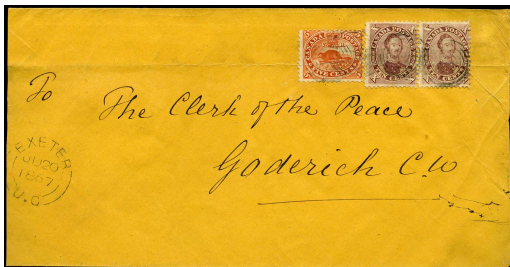 CANADA POSTAGE
FIVE CENTS
CANADA POSTAGE
TEN CENTS
CANADA POSTAGE
TEN CENTS
To The Clerk of the Peace
Goderich C.W
EXETER
JU 20
1867
U.C